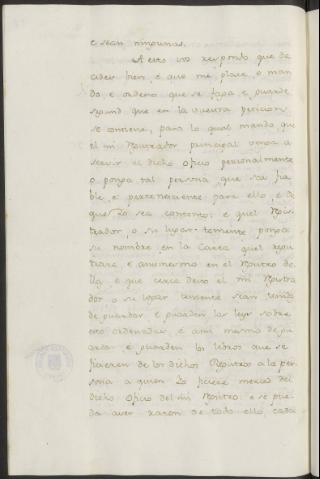 e sean ningunas.
A esto vos respondo que de
cides bien, e que me place, e man
do e ordeno que se faga e guarde
segund que en la vuestra peticion
se contiene, para lo qual mando que
el mi Notador principal venga a
servir el dicho oficio personalmente
o ponga tal persona que sea fia
ble, e pertenesciente para ello, e de
que Yo sea contento: e quel Regis
trador, o su lugar teniente, ponga
su nombre en la Carta quel regis
trare, e ansimesmo en el Registro de
lla, e que cerca desto el mi Registra
dor o su lugar teniente sean tenidos
de guardar e guarden las leyes sobre
esto ordenadas, e ansi mesmo de gu
ardar e guarden los libros que se
ficieren de los dichos Registros a la per
sona a quien Yo ficiere merced del
dicho oficio del mi Registro: e se pue
da aver razon de todo ello cada